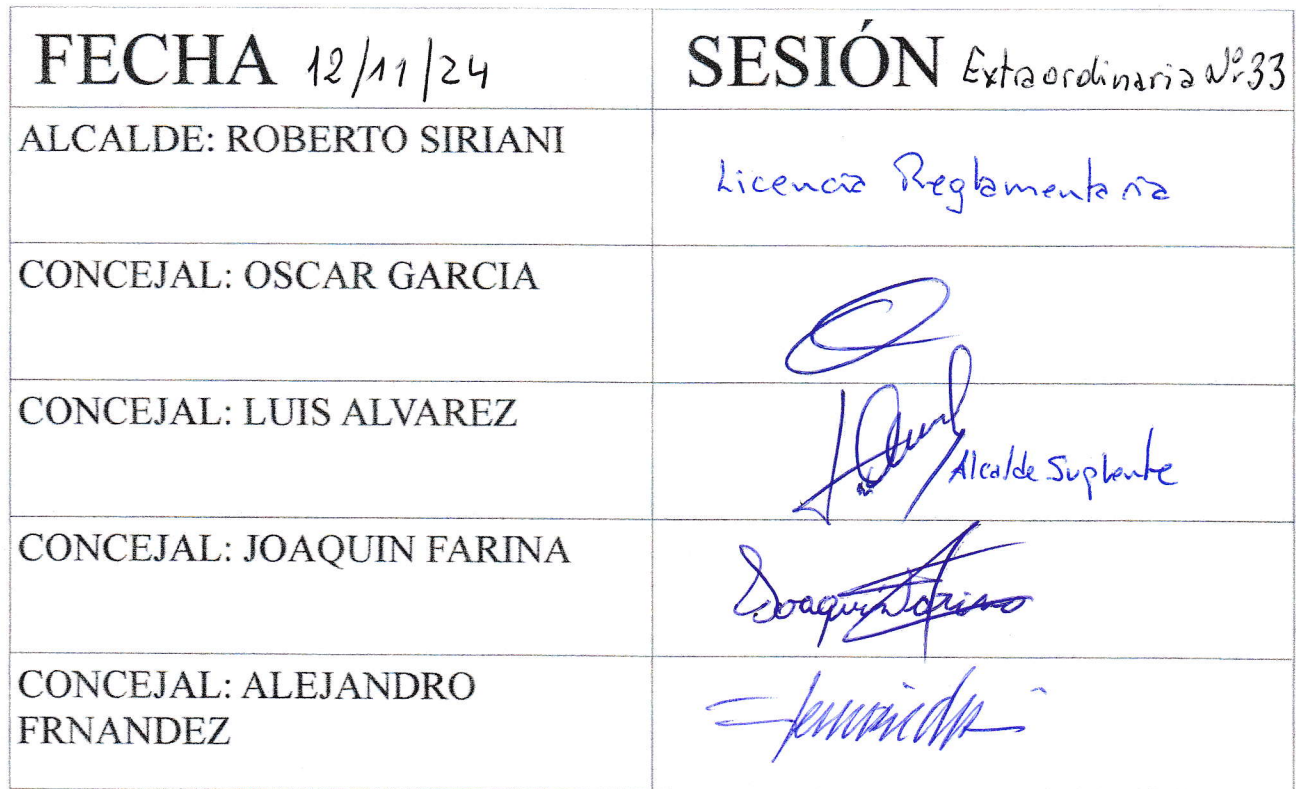 FECHA 12/11/24
SESIÓN Extraordinaria Nº33
ALCALDE: ROBERTO SIRIANI
Licencia Reglamentaria
CONCEJAL: OSCAR GARCIA
CONCEJAL: LUIS ALVAREZ
Alcalde Suplente
CONCEJAL: JOAQUIN FARINA
Joaquin Farina
CONCEJAL: ALEJANDRO
FRNANDEZ